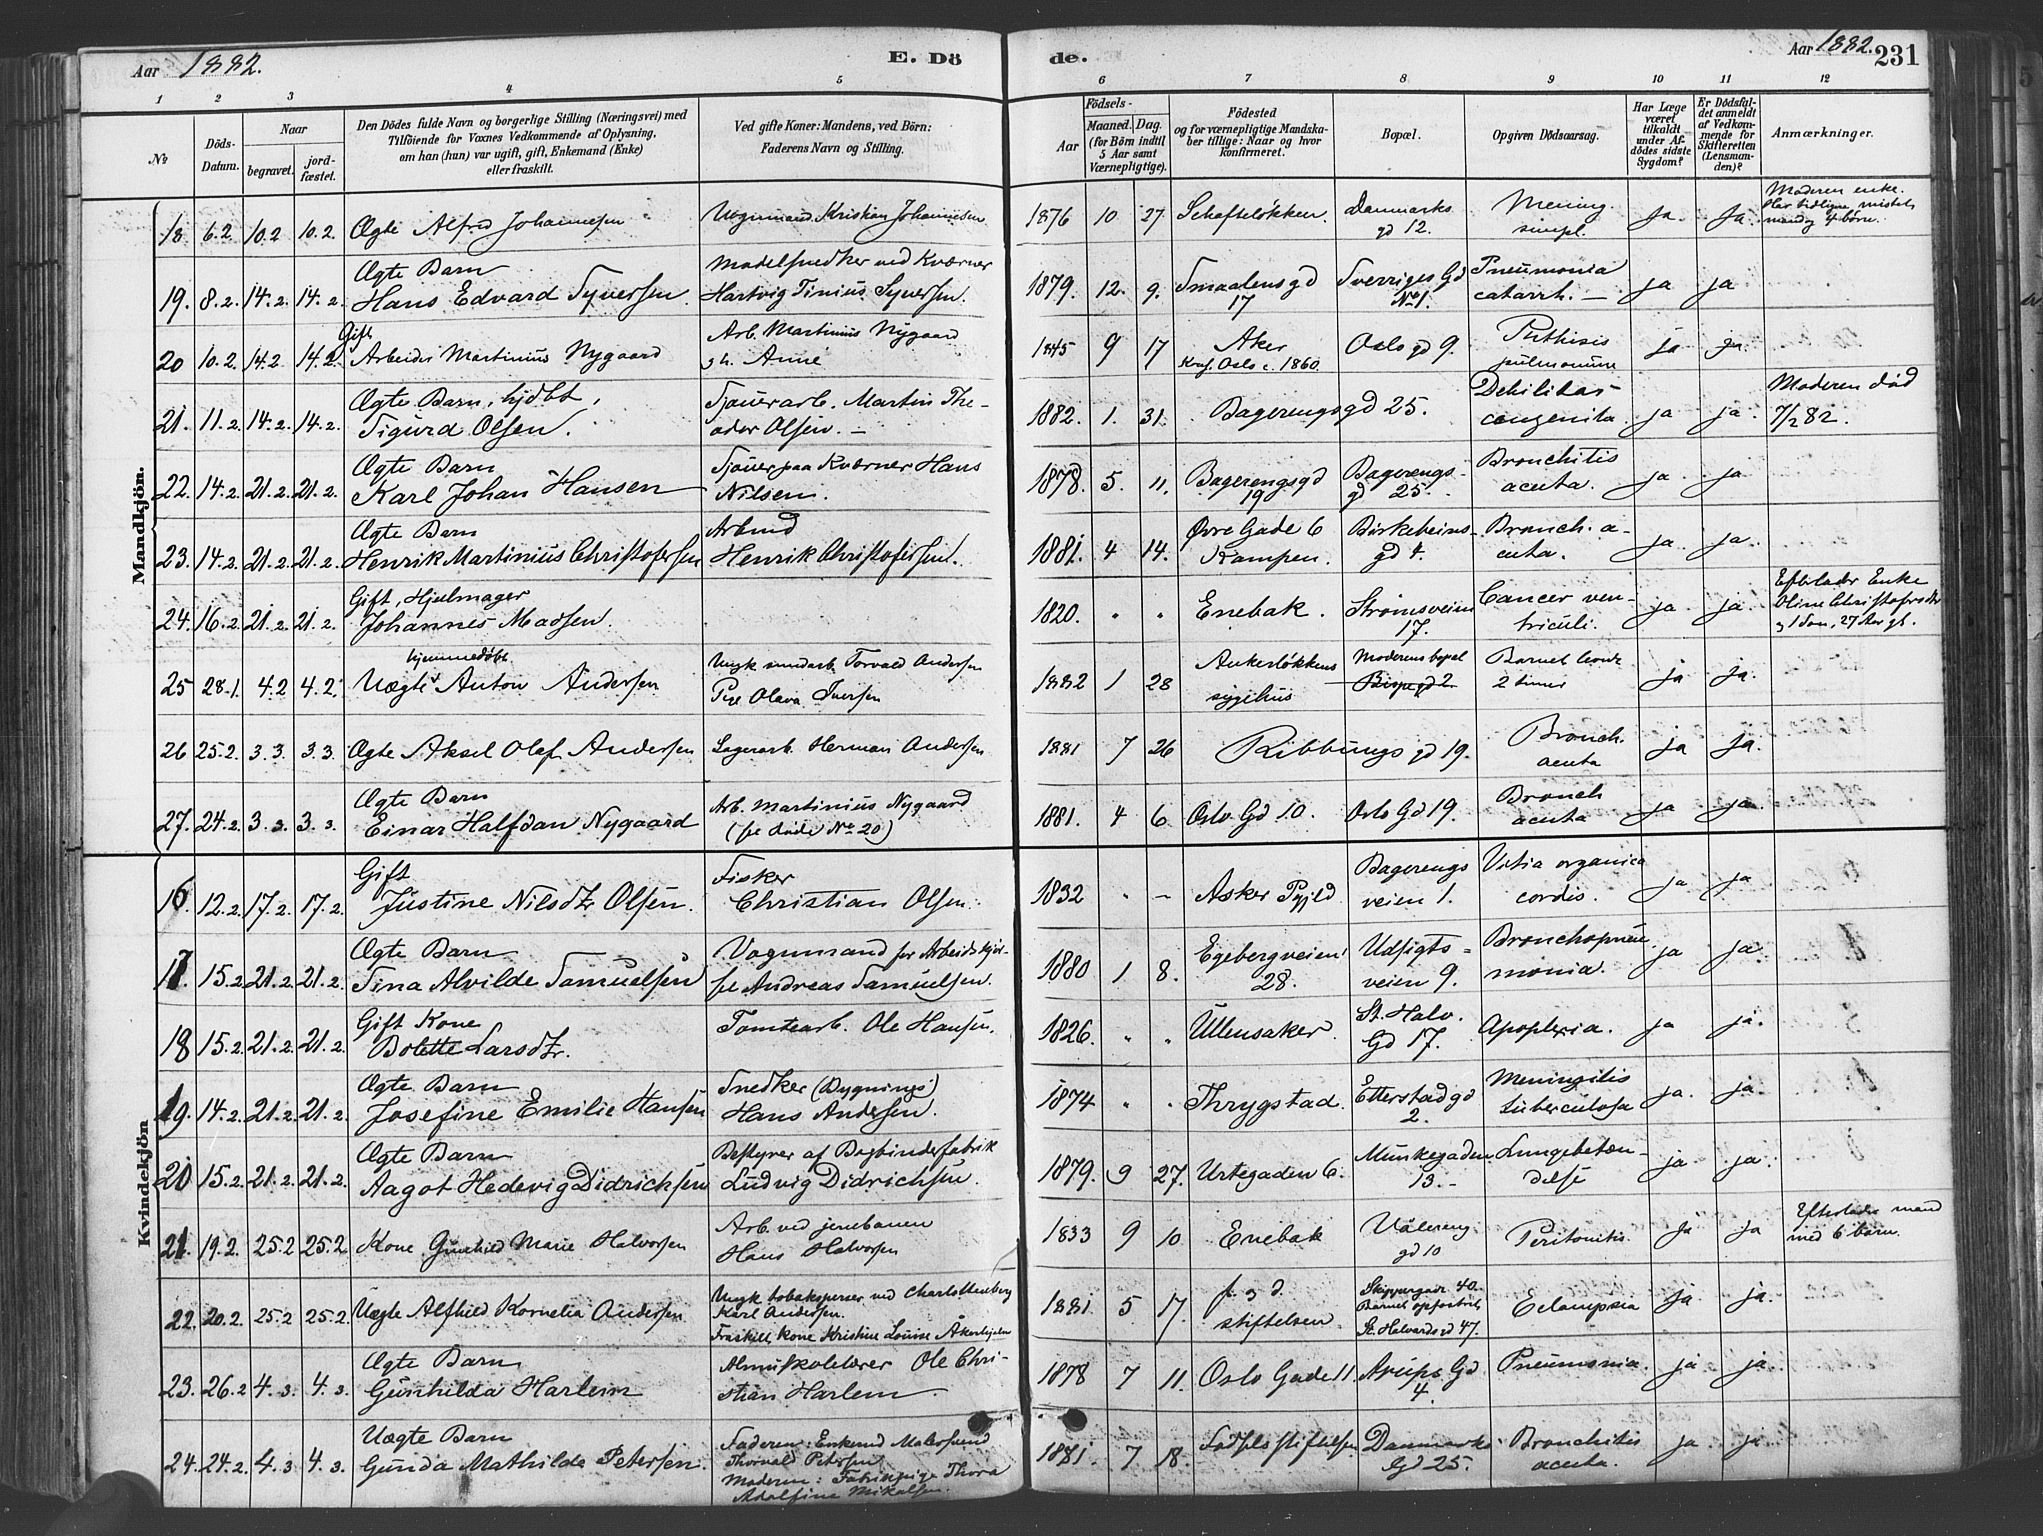 Aar 1882.
E. Dö
de.
Aar 1882.
231
1 2 3 4 5 6 7 8 9 10 11 12
№
Döds-Datum.
Naar
begravet.
jord-fæstet.
Den Dödes fulde Navn og borgerlige Stilling (Næringsvei) med
Tilföiende for Voxnes Vedkommende af Oplysning,
om han (hun) var ugift, gift, Enkemand (Enke)
eller fraskilt.
Ved gifte Koner: Mandens, ved Börn:
Faderens Navn og Stilling.
Födsels-
Aar
Maaned. Dag.
(for Börn indtil
5 Aar samt
Værnepligtige).
Födested
og for værnepligtige Mandska-
ber tillige: Naar og hvor
konfirmeret.
Bopæl.
Opgiven Dödsaarsag.
Har Læge
været
tilkaldt
under Af-
dödes sidste
Sygdom?
Er Dödsfal-
det anmeldt
af Vedkom-
mende for
Skifteretten
(Lensman-
den)?
Anmærkninger.
Mandkjön.
18 6.2 10.2 10.2 Ægte Alfred Johannesen Vognmand Kristian Johannesen 1876 10 27 Schafteløkken Danmarks gd 12. Mening. simpl. ja Ja Moderen enke. mand og 4 børn.
19. 8.2 14.2. 14.2. Ægte Barn Hans Edvard Syversen. Modelsnedker ved Kværner Hartvig Tinius Syversen. 1879. 12. 9. Smaalensgd 17 Sverriges Gd No 1. Pneumonia catarrh. — ja ja
20 10.2. 14.2 14.2 Gift Arbeider Martinius Nygaard Arb. Martinius Nygaard og h. Anne 1845 9 17 Aker Konf. Oslo c. 1860. Oslo gd 9. Phthisis pulmonum ja ja
21. 11.2. 14.2. 14.2. Ægte Barn, hjdbt, Sigurd Olsen. Sjouerarb. Martin Theodor Olsen. — 1882. 1. 31. Bagerengsgd 25. Debilitas congenita. ja ja. Moderen død 7/2 82.
22. 14.2. 21.2. 21.2. Ægte Barn Karl Johan Hansen Sjouer paa Kværner Hans Nilsen. 1878. 5. 11. Bagerengsgd 19 Bagerengs-gd 25. Bronchitis acuta. ja ja
23. 14.2. 21.2. 21.2. Ægte Barn Henrik Martinius Christofersen Arbmd Henrik Christofersen. 1881. 4 14. Øvre Gade 6 Kampen. Birkebeins-gd 4. Bronch. a-cuta. ja ja.
24. 16.2. 21.2. 21.2. Gift, Hjulmager Johannes Madsen. 1820. " " Enebak. Strømsveien 17. Cancer ven-triculi. ja ja. Efterlader Enke Oline Christofersdtr og 1 Søn, 27 Aar gl.
25 28.1. 4.2 4.2. hjemmedøbt Uægte Anton Andersen Ungk Torvald Andersen Pige Olava Iversen 1882 1 28 Ankerløkkens sygehus Moderens bopæl Bispegd 2 Barnet levde 2 timer ja ja.
26 25.2. 3.3. 3.3. Ægte Aksel Olaf Andersen Lagerarb. Herman Andersen 1881 7 26 Ribbungs gd 19. Bronch. acuta ja ja.
27. 24.2. 3.3. 3.3. Ægte Barn Einar Halfdan Nygaard Arb. Martinius Nygaard (se døde No 20) 1881. 4 6 Oslo Gd 10. Oslo Gd 19. Bronch acuta ja ja
Kvindekjön
16. 12.2. 17.2. 17.2. Gift Justine Nilsdtr Olsen. Fisker Christian Olsen. 1832 " — Asker Pgjld Bagerengs veien 1. Vitia organica cordis. ja ja
17. 15.2 21.2 21.2. Ægte Barn Tina Alvilde Samuelsen Vognmand for Arbeidskjør-sel Andreas Samuelsen. 1880 1 8. Egebergveien 28. Udsigts-veien 9. Bronchopneu-monia. ja ja.
18 15.2 21.2 21.2. Gift Kone Bolette Larsdtr. Tomtearb. Ole Hansen. 1826. " " Ullensaker St. Halv. Gd 17. Apoplexia. ja ja.
19. 14.2. 21.2. 21.2. Ægte Barn Josefine Emilie Hansen Snedker (Bygnings) Hans Andersen. 1874 " " Thrygstad. Etterstadgd 2. Meningitis tuberculosa ja. ja.
20 15.2. 21.2. 21.2. Ægte Barn Aagot Hedevig Didrichsen Bestyrer af Bogbinderfabrik Ludvig Didrichsen. 1879. 9 27. Urtegaden 6. Munkegaden 13.- Lungebetæn-delse ja ja.
21. 19.2. 25.2 25.2. Kone Gunhild Marie Halvorsen Arb. ved jernbanen Hans Halvorsen 1833 9 10 Enebak Vålereng gd 10 Peritonitis. Ja ja Efterlader mand med 6 børn.
22. 20.2. 25.2 25.2. Uægte Alfhild Kornelia Andersen Ungk ved Charlottenberg Karl Andersen. Fraskilt Kone Kristine Louise 1881 5 17. f. og d. stiftelsen Skippergade 40. Barnet opfostret St. Halvardsgd 47. Eclampsia Ja ja.
23. 26.2 4.3. 4.3. Ægte Barn Gunhilda Harlem Almuskolelærer Ole Chri-stian Harlem. 1878 7 11. Oslo Gade 11 Arups Gd 4. Pneumonia. ja ja.
24. 24.2. 4.3 4.3. Uægte Barn Gunda Mathilde Petersen. Faderen: Enkemd Malersvend Thorvald Petersen Moderen: Fabrikpige Thora Adolfine Mikalsen. 1881 7 18. Fødselsstiftelsen Danmarks Gd 25. Bronchitis acuta. ja ja